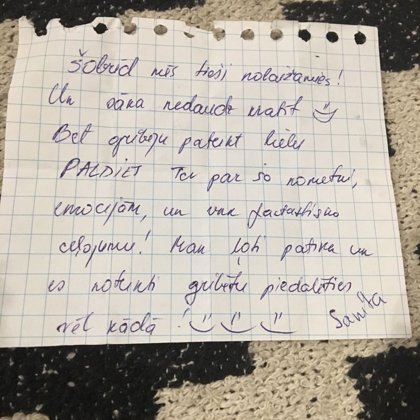 Šobrīd mēs tieši nolaižamies!
Un sāka nedaudz kratīt
Bet gribēju pateikt lielu
PALDIES Tev par šo nometni,
emocijām, un fantastisko
ceļojumu! Man ļoti patika un
es noteikti gribētu piedalīties
vēl kādā!
Sanita